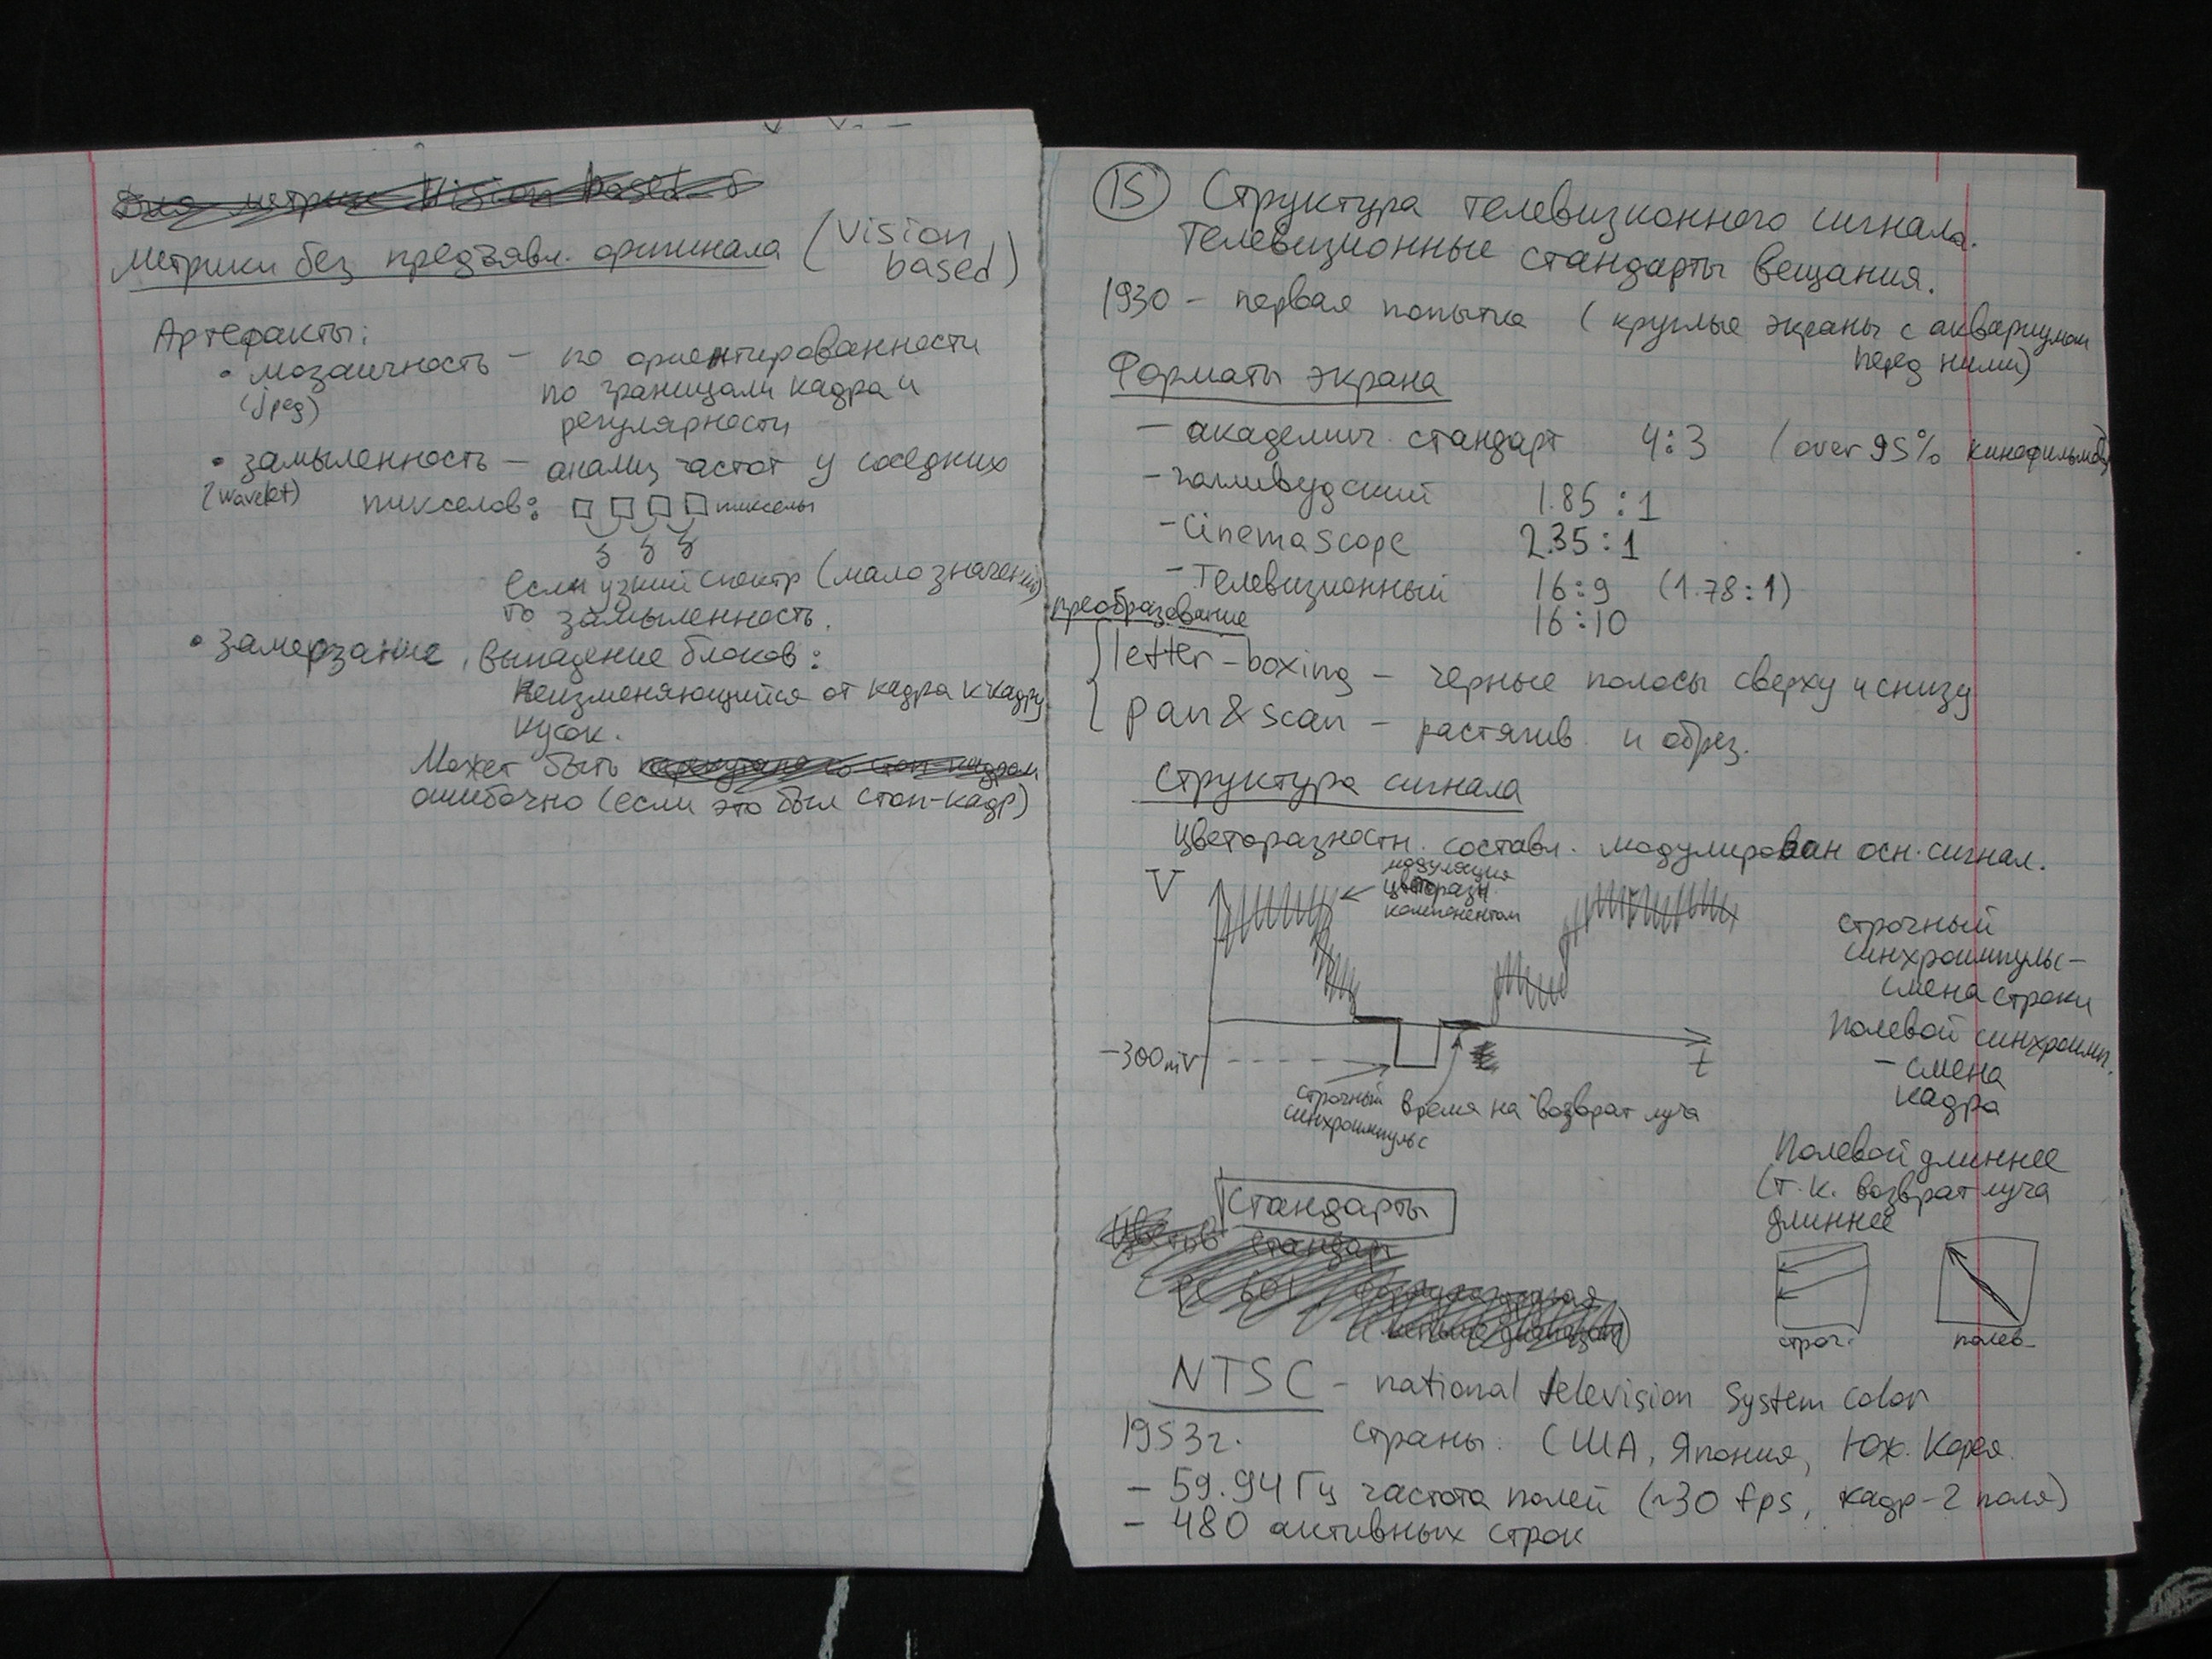 Метрики без предъявл. оригинала (Vision based)
Артефакты:
• мозаичность – по ориентированности
(jpeg) по границам кадра и
регулярности
• замыленность – анализ частот у соседних
(wavelet) пикселов: пикселы
Если узкий спектр (мало значений)
то замыленность.
• замерзание, выпадение блоков:
Неизменяющийся от кадра к кадру
кусок.
Может быть
ошибочно (если это был стоп-кадр)
15 Структура телевизионного сигнала.
Телевизионные стандарты вещания.
1930 – первая попытка (круглые экраны с аквариумом
перед ними)
Форматы экрана
– академич. стандарт 4:3 (over 95% кинофильмов)
– голливудский 1.85 : 1
– Cinemascope 2.35 : 1
– Телевизионный 16:9 (1.78:1)
16:10
преобразование
letter-boxing – черные полосы сверху и снизу
pan&scan – растягив. и обрез.
Структура сигнала
Цветоразностн. составл. модулирован осн. сигнал.
V
модуляция
цветоразн.
компонентом
-300mV
t
строчный
синхроимпульс
время на возврат луча
строчный
синхроимпульс –
смена строки
Полевой синхроимп.
– смена
кадра
Полевой длиннее
(т.к. возврат луча
длиннее
строч.
полев.
Стандарты
NTSC – national television System color
1953г. Страны: США, Япония, Юж. Корея.
– 59.94 Гц частота полей (~30 fps, кадр-2 поля)
– 480 активных строк